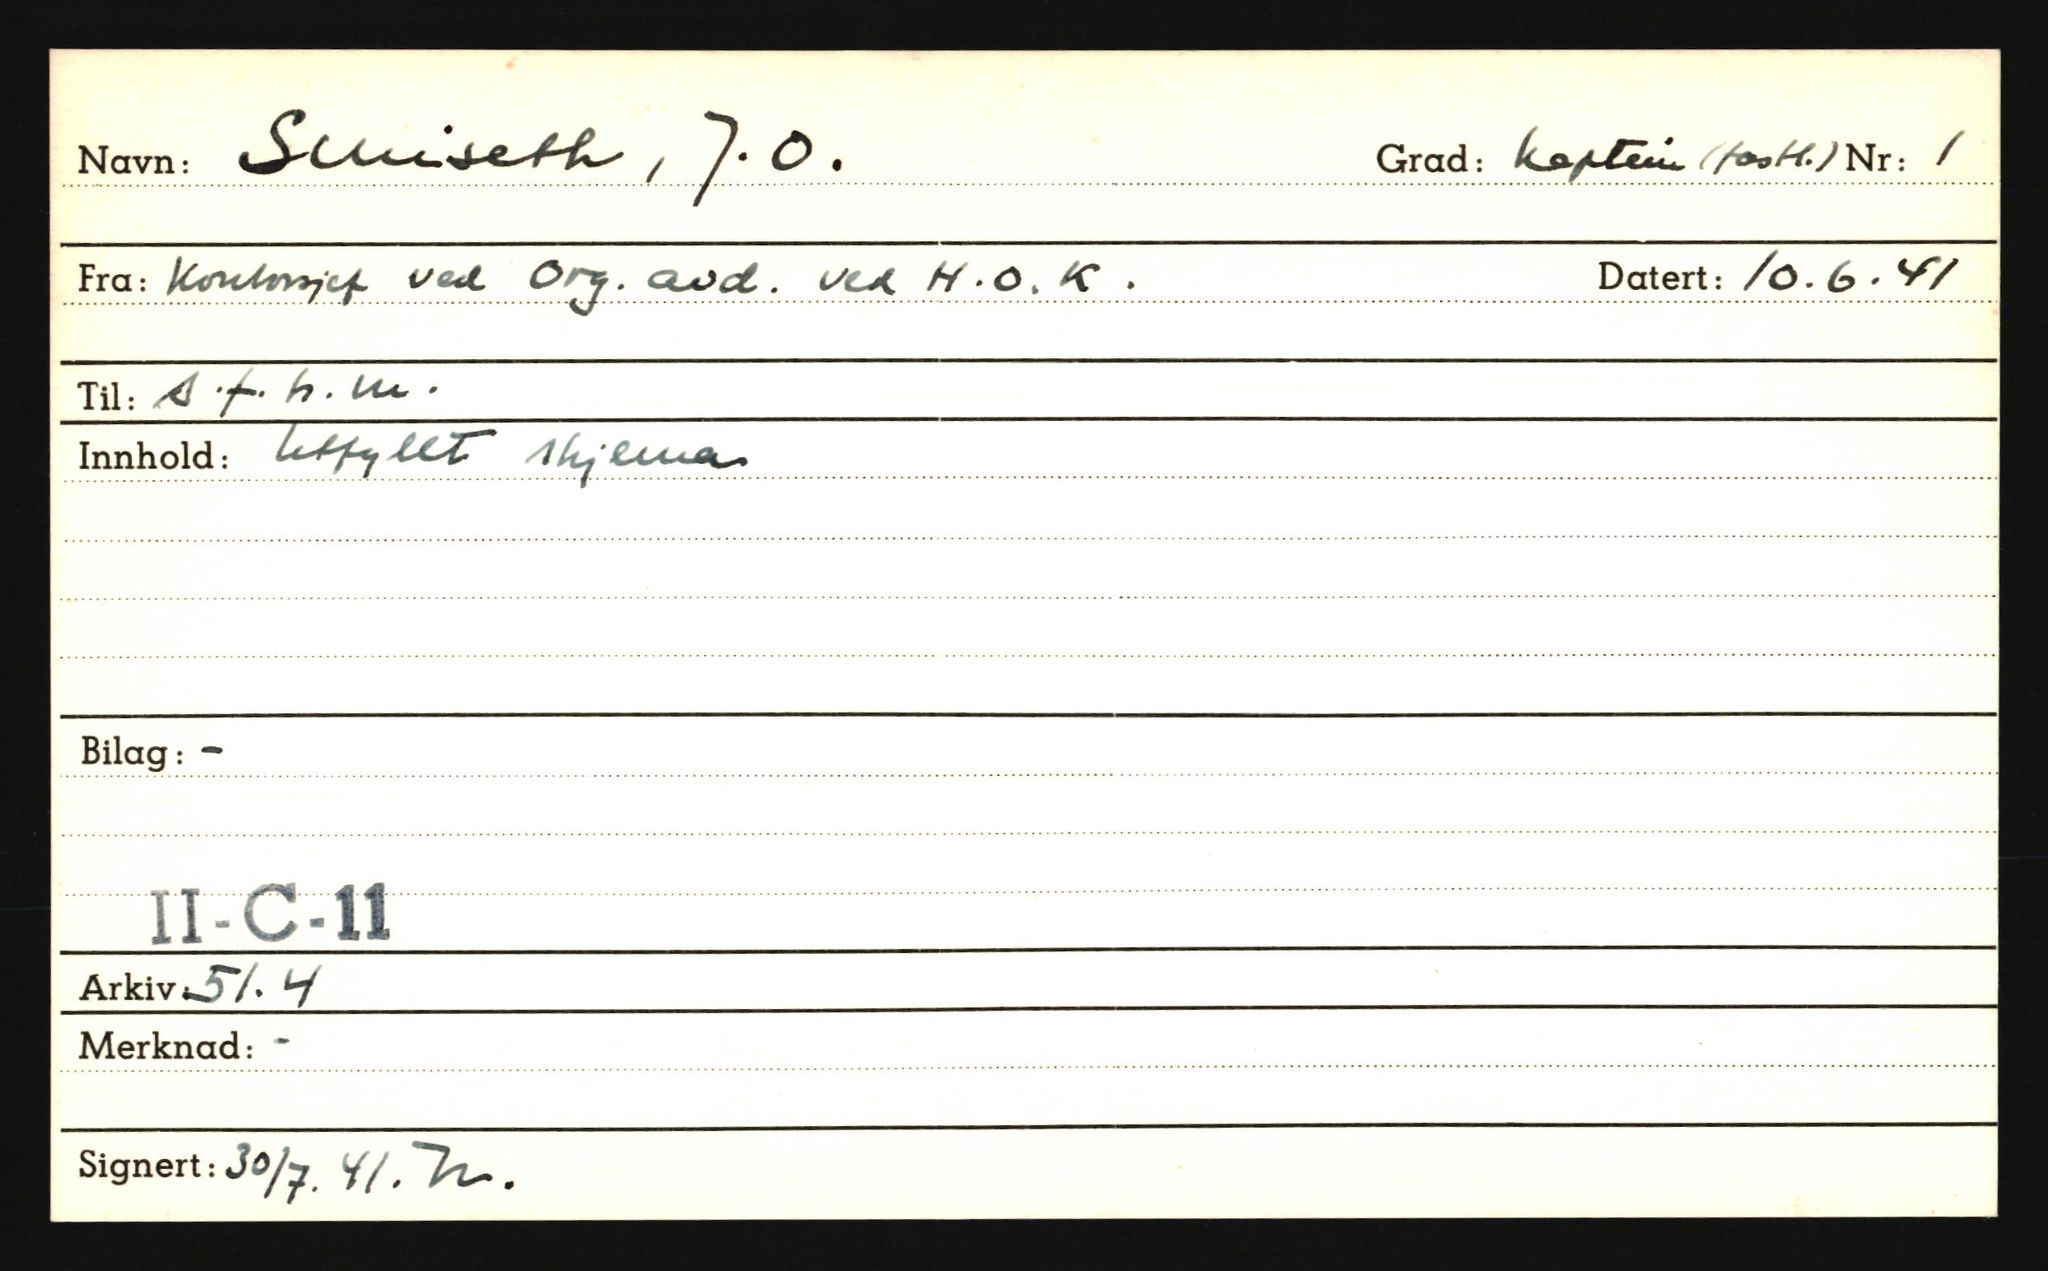 Navn: Smiseth, J.O. Grad: kaptein (fastl.) Nr: 1
Fra: Kontorsjef ved Org. avd. ved H.O.K. Datert: 10.6.41
Til: s.f.h.m.
Innhold: Utfyllt skjema
Bilag: -
II-C-11
Arkiv: 51.4
Merknad: -
Signert: 30/7. 41.